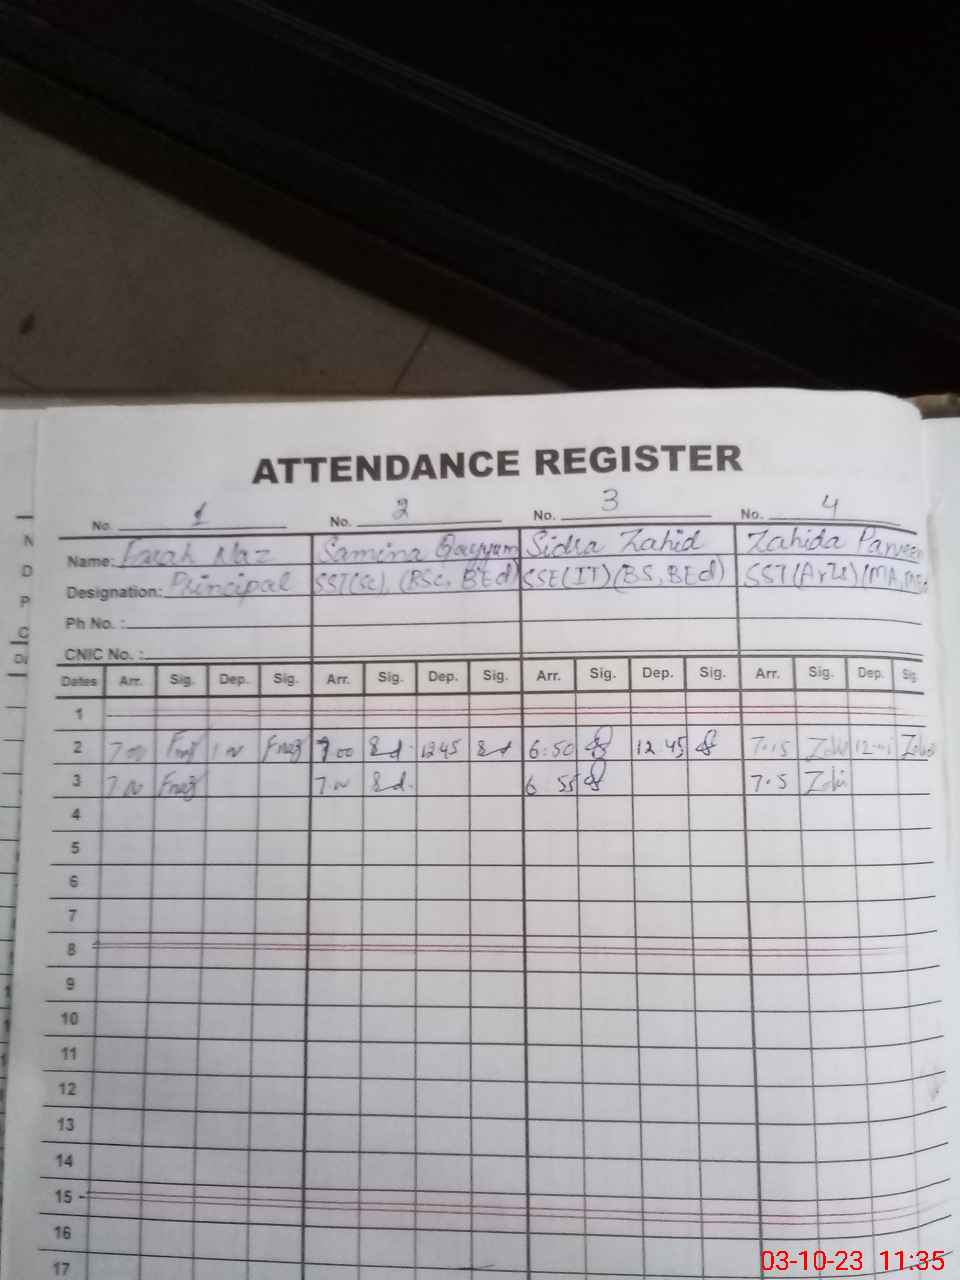 ATTENDANCE REGISTER
No. 1 No. 2 No. 3 No. 4
Name: Farah Naz Samina Qayyum Sidra Zahid Zahida Parveen
Designation: Principal SST(Sc), (BSc, BEd) SSE(IT)(BS, BEd) SST(Arts)(MA,
Ph No. :
CNIC No. :
Dates Arr. Sig. Dep. Sig. Arr. Sig. Dep. Sig. Arr. Sig. Dep. Sig. Arr. Sig. Dep. Sig.
1
2 7 00 Fnaz Fnaz 7 00 Sd. 1245 Sd 6:50 12:45 7.15
3 Fnaz Sd. 6 55 7.5
4
5
6
7
8
9
10
11
12
13
14
15
16
17
03-10-23 11:35